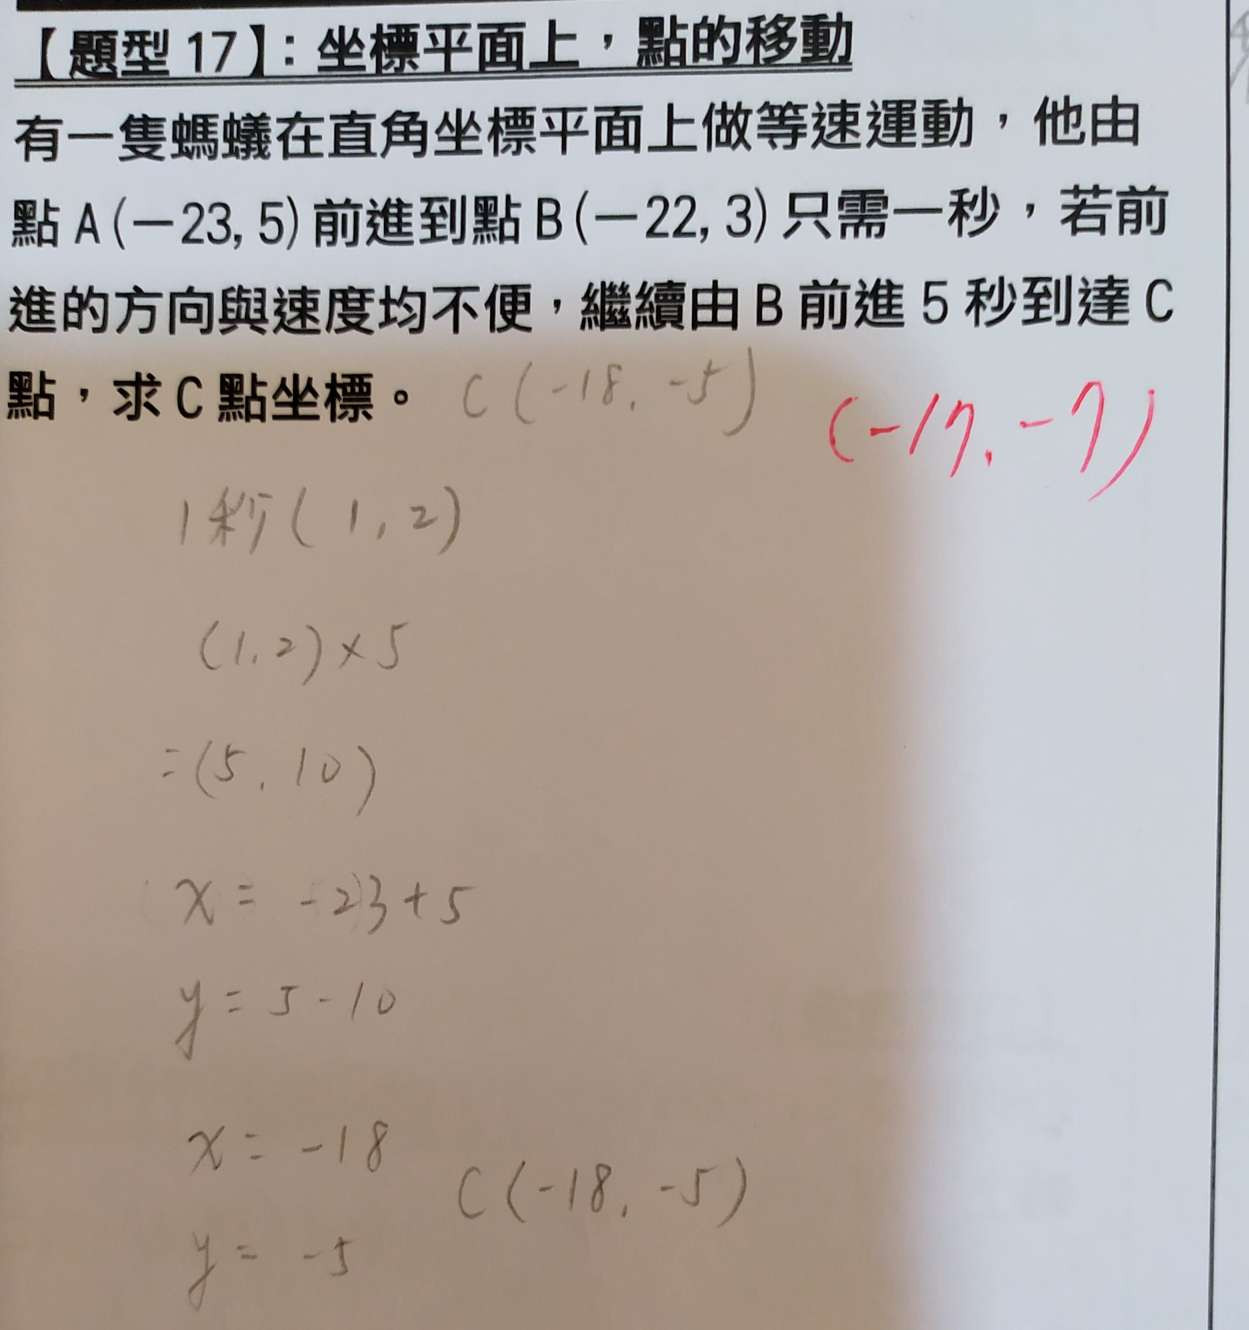 【題型 17】：坐標平面上，點的移動
有一隻螞蟻在直角坐標平面上做等速運動，他由
點 A(－23, 5) 前進到點 B(－22, 3) 只需一秒，若前
進的方向與速度均不便，繼續由 B 前進 5 秒到達 C
點，求 C 點坐標。 C(-18, -5) (-17, -7)
1秒(1, 2)
(1, 2)×5
=(5, 10)
x = -23+5
y = 5-10
x = -18
C(-18, -5)
y = -5